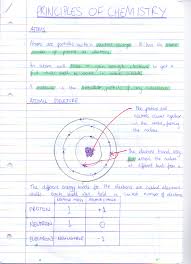 PRINCIPLES OF CHEMISTRY
ATOMS
Atoms are particles with a neutral charge. It has the same
number of protons as electrons.
An atom will lose or gain enough electrons to get a
full outer shell
A molecule is the smallest particle of any substance
ATOMIC STRUCTURE
The protons and
neutrons cluster together
in the centre, forming
the nucleus
The electrons travel
around the nucleus
at different levels from it
The different energy levels for the electrons are called electron
shells. Each shell can hold a number of electrons
RELATIVE MASS
RELATIVE CHARGE
PROTON 1 +1
NEUTRON 1 0
ELECTRON NEGLIGIBLE -1